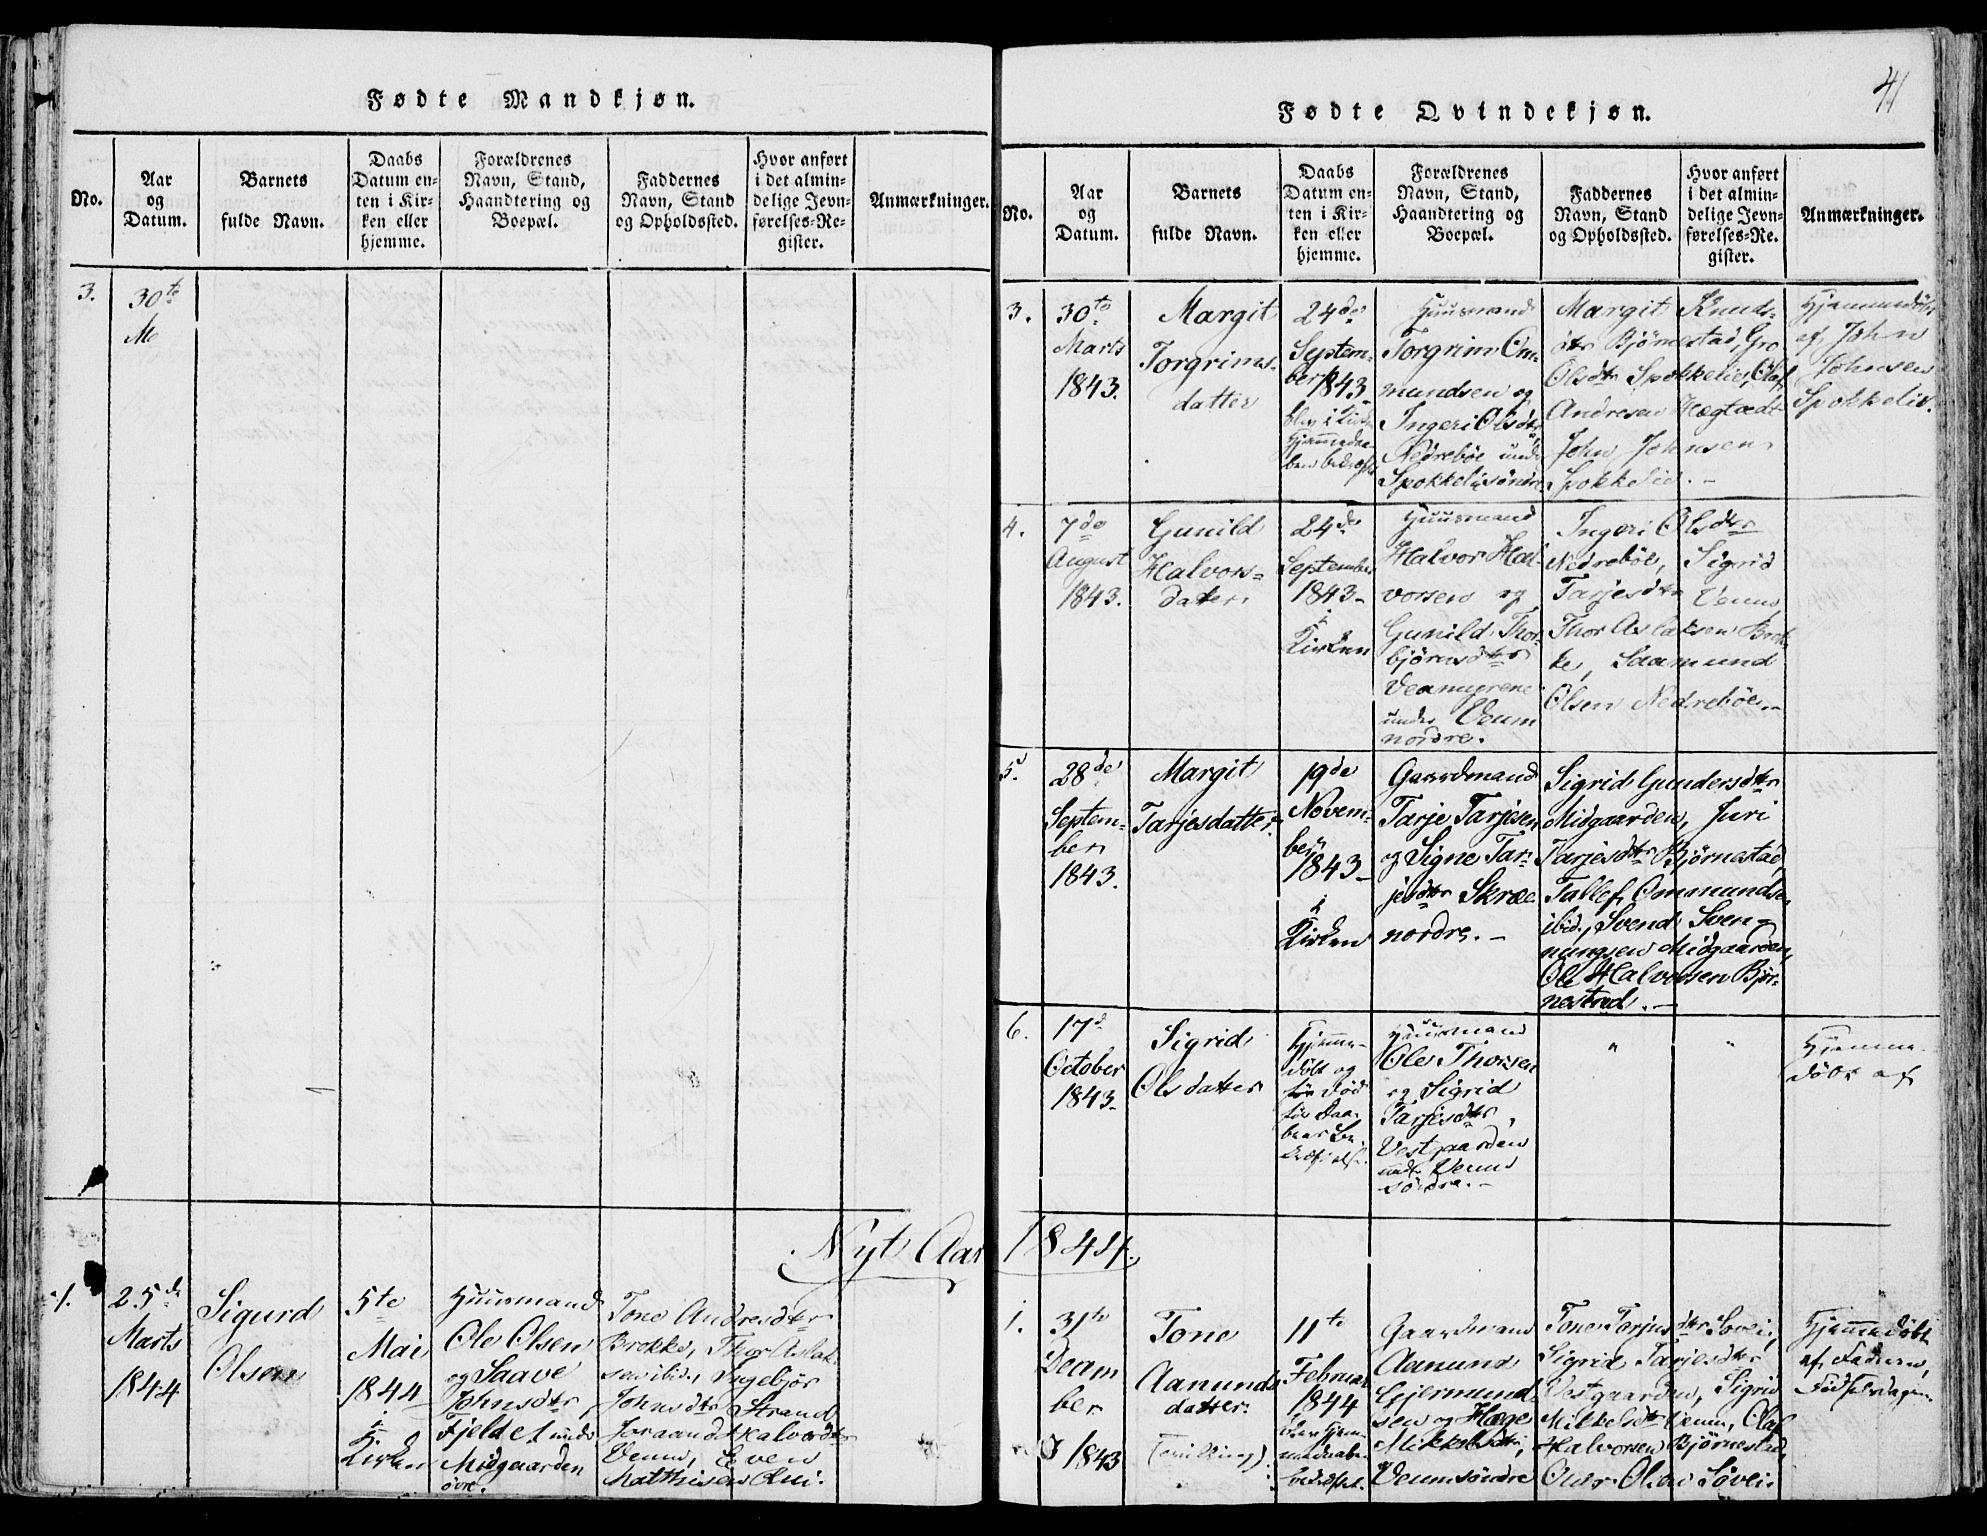 Fødte Mandkjøn.
No.
Aar
og
Datum.
Barnets
fulde Navn.
Daabs
Datum en-
ten i Kir-
ken eller
hjemme.
Forældrenes
Navn, Stand,
Haandtering og
Boepæl.
Faddernes
Navn, Stand
og Opholdssted.
Hvor anført
i det almin-
delige Jevn-
førelses-Re-
gister.
Anmærkninger.
3.
30te
M
Nyt Aar
1.
25de
Marts
1844
Sigurd
Olsen
5te
Mai
1844
i
Kirken
Huusmand
Ole Olsen
og Saave
Johnsdtr
Fjeldet und.
Midgaarden
øvre.
Tone Andresdtr
Brokke, Thor Aslak-
sen ibid, Ingebjør
Johnsdtr Strand
Joraand Halvorsdtr
Veum, Even
Matthisen Kui.
41
Fødte Qvindekjøn.
No.
Aar
og
Datum.
Barnets
fulde Navn.
Daabs
Datum en-
ten i Kir-
ken eller
hjemme.
Forældrenes
Navn, Stand,
Haandtering og
Boepæl.
Faddernes
Navn, Stand
og Opholdssted.
Hvor anført
i det almin-
delige Jevn-
førelses-Re-
gister.
Anmærkninger.
3.
30te
Marts
1843.
Margit
Torgrims-
datter
24de
Septem-
ber 1843
blev i Kirken
Hjemmedaa-
ben bekræftet
Huusmand
Torgrim Om-
mundsen og
Ingeri Olsdtr
Nedrebøe under
Spokkeli søndre
Margit Knuds-
dtr Bjørnestad, Gro
Olsdtr Spokkelie, Olaf
Andresen Hægtædt
John Johnsen
Spokkelie. -
Hjemmedøbt
af John
Johnsen
Spokkelie.
4.
7de
August
1843.
Gunild
Halvors-
datter
24de
September
1843-
i
Kirken
Huusmand
Halvor Hal-
vorsen og
Gunild Thor-
bjørnsdtr
Veamyrene
under Veum
nordre.
Ingeri Olsdtr
Nedrebøe, Sigrid
Tarjesdtr Veum
Thor Aslaksen Brok-
ke, Saamund
Olsen Nedrebøe.-
5.
28de
Septem-
ber
1843.
Margit
Tarjesdatter.
19de
Novem-
ber
1843-
i
Kirken
Gaardmand
Tarje Tarjesen
og Signe Tar-
jesdtr Skræe
nordre. -
Sigrid Gundersdtr
Midgaarden, Juri
Tarjesdtr Bjørnestad,
Tallef Ommundsen
ibid, Svend Sven-
nungsen Midgaarden,
Ole Halvorsen Bjør-
nestad. -
6.
17d
October
1843-
Sigrid
Olsdatter
Hjemme-
døbt og
før død
før Daa-
bens Be-
kræftelse.
Huusmand
Ole Thorsen
og Sigrid
Tarjesdtr,
Vestgaarden
und. Veum
søndre. -
"
"
Hjemme-
døbt af
1844.
1.
31te
Decem
ber
1843
Tone
Aanunds
datter
(Tvilling)
11te
Februar
1844
blev Hjem-
medaaben
bekræftet.
Gaardmand
Aanund
Gjermund-
sen og Hæge
Mikkelsdtr,
Veum søndre
Tone Torjusdtr Søvei,
Sigrid Tarjesdtr
Vestgaarden, Sigrid
Mikkelsdtr Veum, Olaf
Halvorsen Bjørnestad,
Olav Olsen Søvei
Hjemmedøbt
af Faderen,
Fødselsdagen.